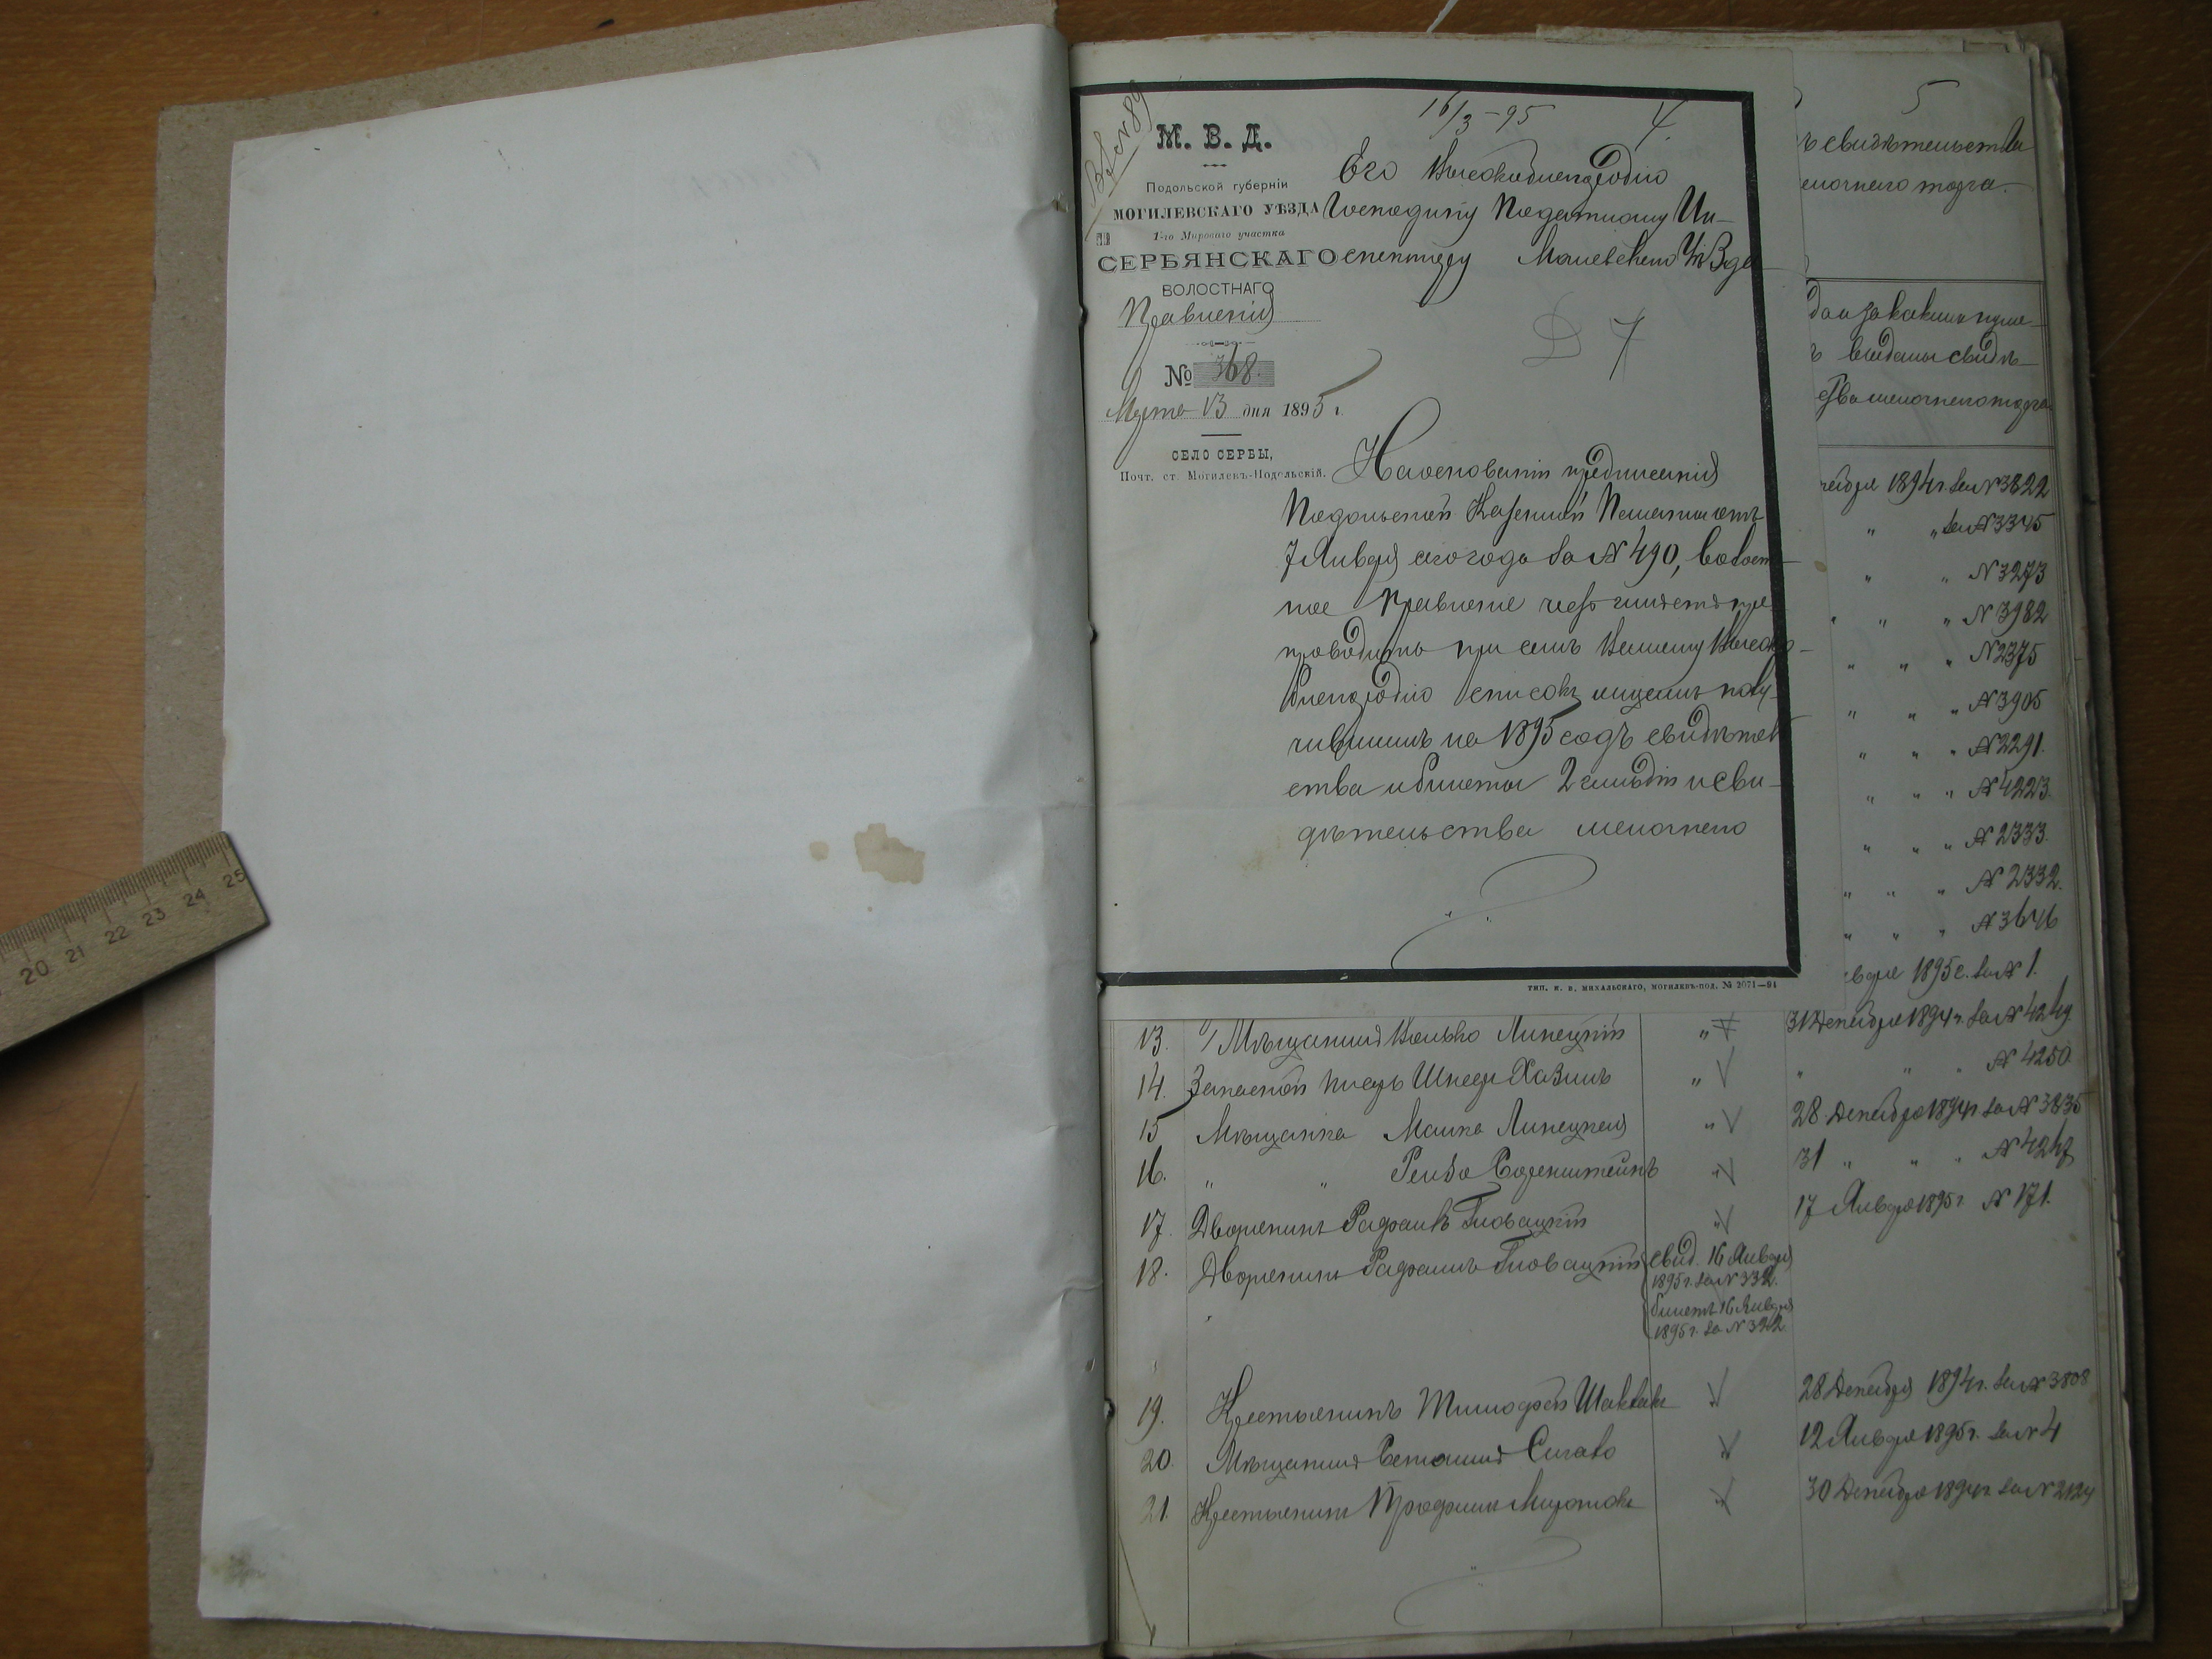 16/3-95
4.
М. В. Д.
Подольской губерніи
МОГИЛЕВСКАГО УѢЗДА
1-го Мироваго участка
СЕРБЯНСКАГО
ВОЛОСТНАГО
Правленія
№ 368.
Марта 13 дня 1895 г.
СЕЛО СЕРБЫ,
Почт. ст. Могилевъ-Подольскій.
Его Высокоблагородію
Господину Податному Ин-
спектору Могилевскаго Уѣзда
На основаніи предписанія
Подольской Казенной Палаты отъ
7 Января сего года за № 490, волост-
ное Правленіе честь имѣетъ пре
проводить при семъ Вашему Высоко-
благородію списокъ лицамъ полу-
чившимъ на 1895 годъ свидѣтель
ства и билеты 2 гильдіи и сви-
дѣтельства мелочнаго
ТИП. И. В. МИХАЛЬСКАГО, МОГИЛЕВЪ-ПОД. № 2071—94
5
ъ свидѣтельства
елочнаго торга.
выданы свидѣ-
ства мелочнаго торга
кабря 1894 г. за № 3822
" " за № 3345
" " № 3273
" " " № 3982
" " " № 2375
" " " № 3905
" " " № 2291.
" " " № 4223.
" " " № 2333.
" " " № 2332.
" " " № 3646
варя 1895 г. за № 1.
13. Мѣщанинъ Волько Липецкій " 31 Декабря 1894 г. за № 4249.
14. Запасной писарь Шнеер Хазинъ " " " " № 4250
15 Мѣщанка Малка Липецкая " 28 Декабря 1894 г за № 3835
16. " " Рейза Соренштейнъ " 31 " " " № 4247
17. Дворянинъ Рафаилъ Гловацкій " 17 Января 1895 г № 171.
18. Дворянинъ Рафаилъ Гловацкій свид. 16 Января
1895 г. за № 332.
билетъ 16 Января
1895 г. за № 392.
19. Крестьянинъ Тимофей 28 Декабря 1894 г. за № 3808
20. Мѣщанинъ 12 Января 1895 г. за № 4
21. Крестьянинъ Трофимъ 30 Декабря 1894 г за № 2124